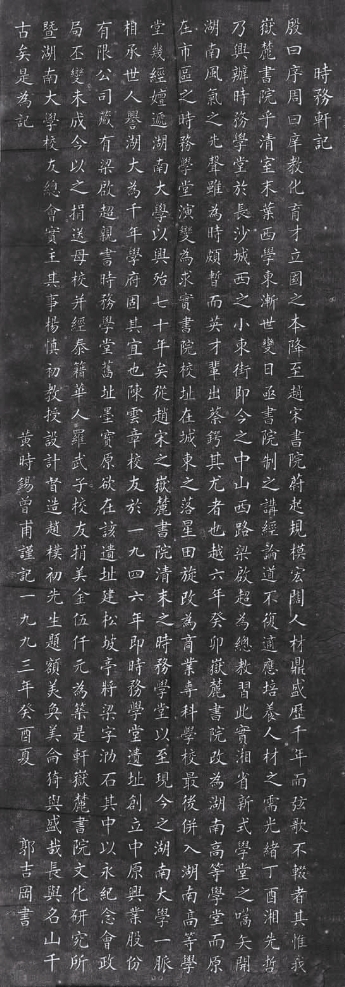 時務軒記
殷曰序周曰庠教化育才立國之本降至趙宋書院蔚起規模宏闊人材鼎盛歷千年而弦歌不輟者其惟我
嶽麓書院乎清室末葉西學東漸世變日亟書院制之講經論道不復適應培養人材之需光緒丁酉湘先哲
乃興辦時務學堂於長沙城西之小東街即今之中山西路梁啟超為總教習此實湘省新式學堂之嚆矢開
湖南風氣之先聲雖為時頗暫而英才輩出蔡鍔其尤者也越六年癸卯嶽麓書院改為湖南高等學堂而原
在市區之時務學堂演變為求實書院校址在城東之落星田旋改為商業專科學校最後併入湖南高等學
堂幾經嬗遞湖南大學以興殆七十年矣從趙宋之嶽麓書院清末之時務學堂以至現今之湖南大學一脈
相承世人譽湖大為千年學府固其宜也陳雲章校友於一九四六年即時務學堂遺址創立中原興業股份
有限公司藏有梁啟超親書時務學堂舊址墨寶原欲在該遺址建松坡亭將梁字泐石其中以永紀念會政
局丕變未成今以之捐送母校并經泰籍華人羅武子校友捐美金伍仟元為築是軒嶽麓書院文化研究所
暨湖南大學校友總會實主其事楊慎初教授設計督造趙樸初先生題額美奐美侖猗與盛哉長與名山千
古矣是為記
黃時錫曾甫謹記一九九三年癸酉夏
郭吉岡書